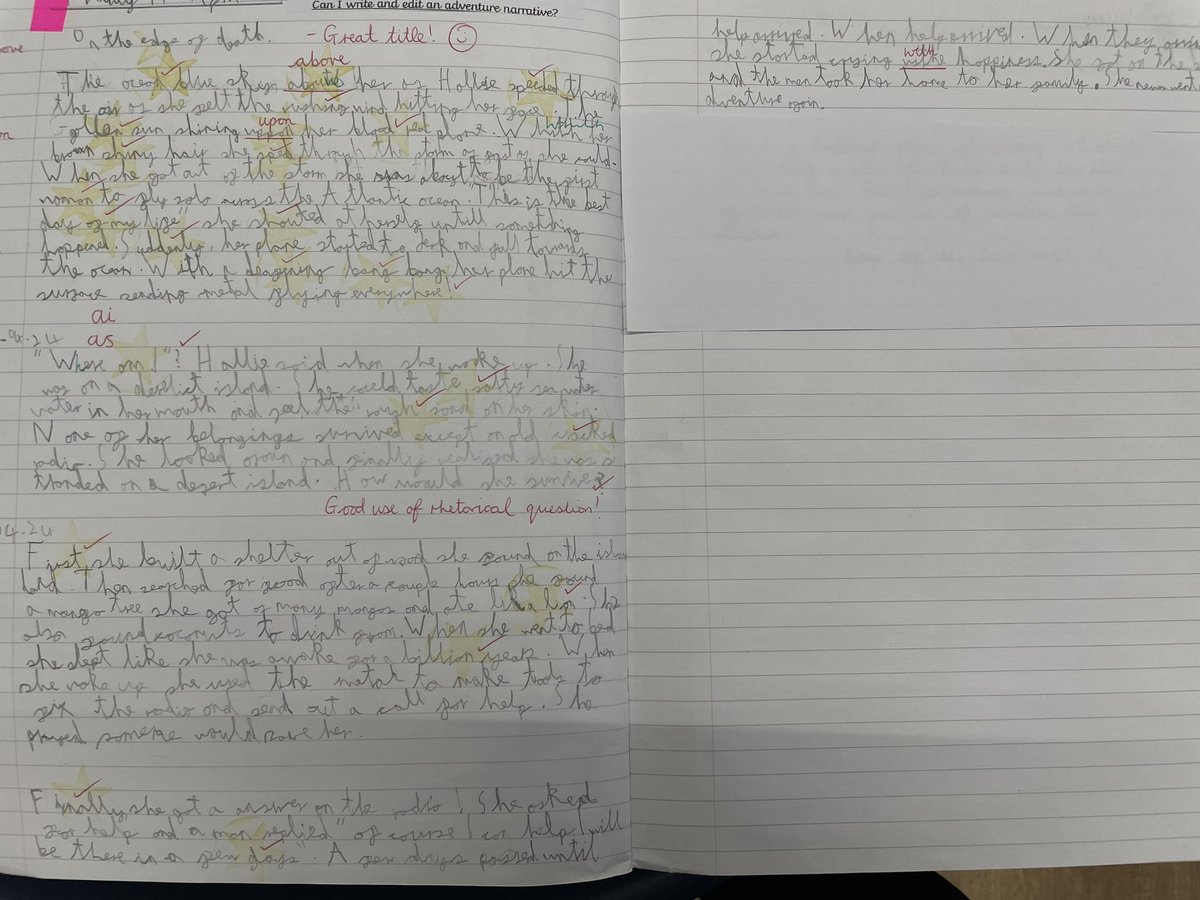 Can I write and edit an adventure narrative?
On the edge of death. - Great title!
above
The ocean blue skys above her as Hallie speeded through
the air as she felt the rushing wind hitting her face. The
Golden sun shining upon her blood red plane. With her
upon
brown shiny hair she sped through the storm as fast as she could.
When she got out of the storm she was about to be the first
woman to fly solo across the Atlantic ocean. "This is the best
day of my life" she shouted at herself untill something
happened. Suddenly, her plane started to jerk and fall towards
the ocean. With a deafening bang bang, her plane hit the
surface sending metal flying everywhere!
ai
as
"Where am I"? Hallie said when she woke up. She
was on a derelict island. She could taste salty sea water
water in her mouth and feel the rough sand on her skin.
None of her belongings survived except an old cracked
radio. She looked aroun and finally realised she was s
tranded on a desert island. How would she survive?
Good use of rhetorical question!
First, she built a shelter out of wood she found on the isla
Then seached for food after a couple hours she found
a mango tree she got of many mangos and ate like a lion. She
also found coconuts to drink from. When she went to bed
she slept like she was awake for a billion years. When
she woke up she used the metal to make tools to
fix the radio and send out a call for help. She
prayed would save her.
Finally, she got a answer on the radio! She asked
for help and a man replied "of course I can help I will
be there in a few days". A few days passed until
help arrived. When help arrived. When they
with
she started crying with happiness. She got on the
and the man took her home to her family. She never went
adventure again.